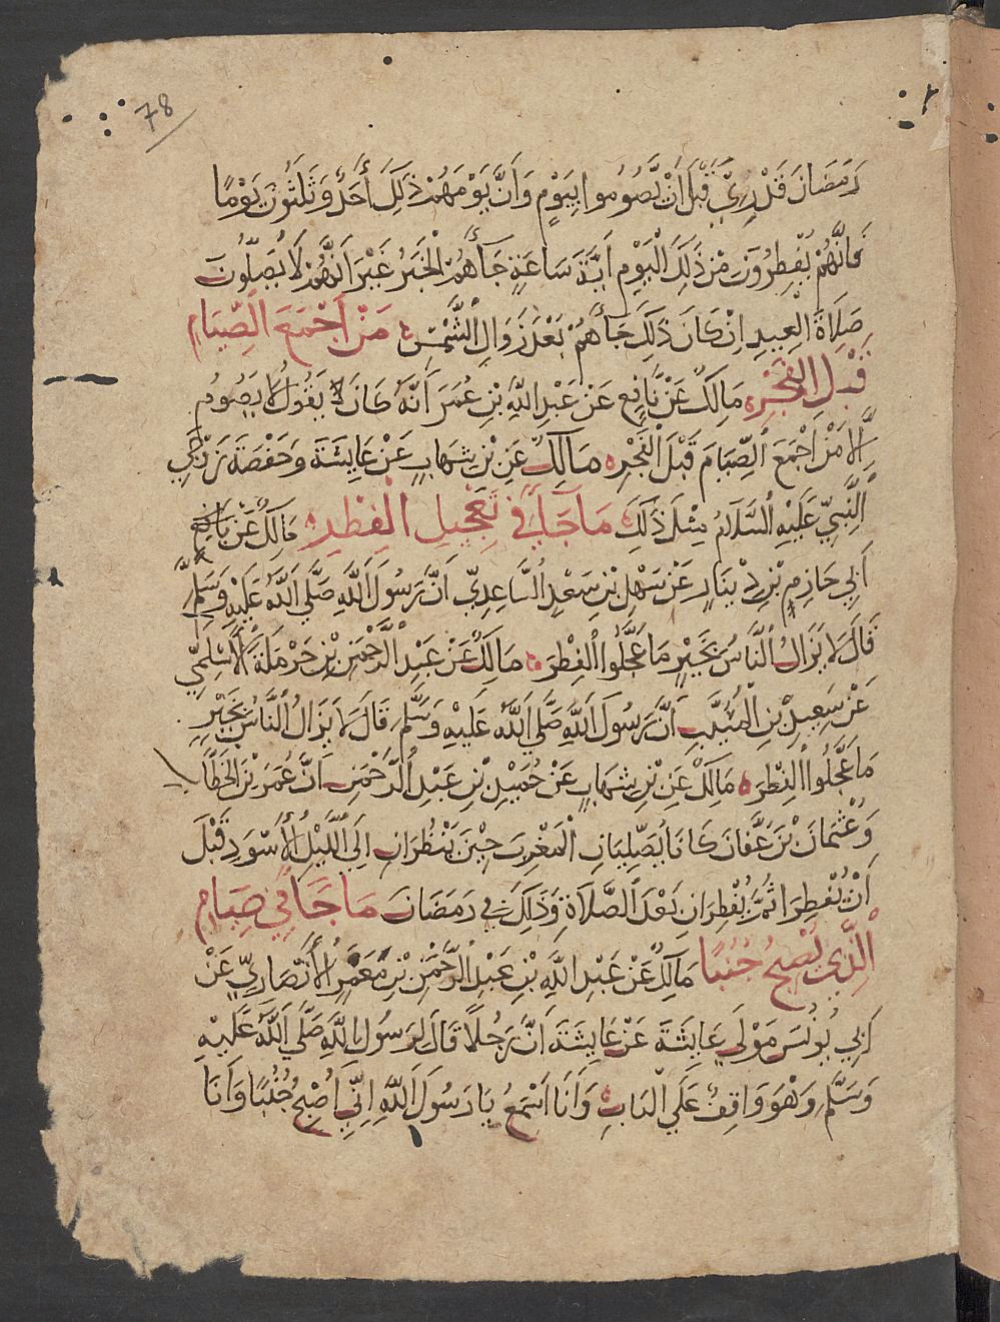 78
رَمَضَانَ قَدْ رِيَ قَبْلَ اَنْ يَّصُوْمُوا بِيَوْمٍ وَاَنَّ يَوْمَهُمْ ذٰلِكَ أَحَدٌ وَثَلٰثُوْنَ يَوْمًا
فَانَّهُمْ يُفْطِرُوْنَ مِنْ ذٰلِكَ الْيَوْمِ اَيَّةَ سَاعَةٍ جَآءَهُمُ الْخَبَرُ غَيْرَ اَنَّهُمْ لَا يُصَلُّونَ
صَلَاةَ الْعِيْدِ اِنْ كَانَ ذٰلِكَ جَآءَهُمْ بَعْدَ زَوَالِ الشَّمْسِ مَنْ اَجْمَعَ الصِّيَامَ
قَبْلَ الْفَجْرِ مَالِكٌ عَنْ نَّافِعٍ عَنْ عَبْدِ اللّٰهِ بْنِ عُمَرَ اَنَّهُ كَانَ يَقُوْلُ لَا يَصُوْمُ
اِلَّا مَنْ اَجْمَعَ الصِّيَامَ قَبْلَ الْفَجْرِ مَالِكٌ عَنِ بْنِ شِهَابٍ عَنْ عَايِشَةَ وَحَفْصَةَ زَوْجَيِ
النَّبِيِّ عَلَيْهِ السَّلَامُ مِثْلَ ذٰلِكَ مَا جَآءَ فِي تَعْجِيْلِ الْفِطْرِ مَالِكٌ عَنْ نَافِعٍ
اَبِي حَازِمِ بْنِ دِيْنَارٍ عَنْ سَهْلِ بْنِ سَعْدٍ السَّاعِدِيِّ اَنَّ رَسُوْلَ اللّٰهِ صَلَّى اللّٰهُ عَلَيْهِ وَسَلَّمَ
قَالَ لَا يَزَالُ النَّاسُ بِخَيْرٍ مَا عَجَّلُوا الْفِطْرَ مَالِكٌ عَنْ عَبْدِ الرَّحْمٰنِ بْنِ حَرْمَلَةَ الْاَسْلَمِيِّ
عَنْ سَعِيْدِ بْنِ الْمُسَيَّبِ اَنَّ رَسُوْلَ اللّٰهِ صَلَّى اللّٰهُ عَلَيْهِ وَسَلَّمَ قَالَ لَا يَزَالُ النَّاسُ بِخَيْرٍ
مَا عَجَّلُوا الْفِطْرَ مَالِكٌ عَنِ بْنِ شِهَابٍ عَنْ حُمَيْدِ بْنِ عَبْدِ الرَّحْمٰنِ اَنَّ عُمَرَ بْنَ الْخَطَّابِ
وَعُثْمَانَ بْنَ عَفَّانَ كَانَا يُصَلِّيَانِ الْمَغْرِبَ حِيْنَ يَنْظُرَانِ اِلَى اللَّيْلِ الْأَسْوَدِ قَبْلَ
اَنْ يُفْطِرَا ثُمَّ يُفْطِرَانِ بَعْدَ الصَّلَاةِ وَذٰلِكَ فِي رَمَضَانَ مَا جَآءَ فِي صِيَامِ
الَّذِي يُصْبِحُ جُنُبًا مَالِكٌ عَنْ عَبْدِ اللّٰهِ بْنِ عَبْدِ الرَّحْمٰنِ بْنِ مَعْمَرٍ الْأَنْصَارِيِّ عَنْ
اَبِي يُوْنُسَ مَوْلَى عَايِشَةَ عَنْ عَايِشَةَ اَنَّ رَجُلًا قَالَ لِرَسُوْلِ اللّٰهِ صَلَّى اللّٰهُ عَلَيْهِ
وَسَلَّمَ وَهُوَ وَاقِفٌ عَلَى الْبَابِ وَاَنَا اَسْمَعُ يَا رَسُوْلَ اللّٰهِ اِنِّي اُصْبِحُ جُنُبًا وَاَنَا